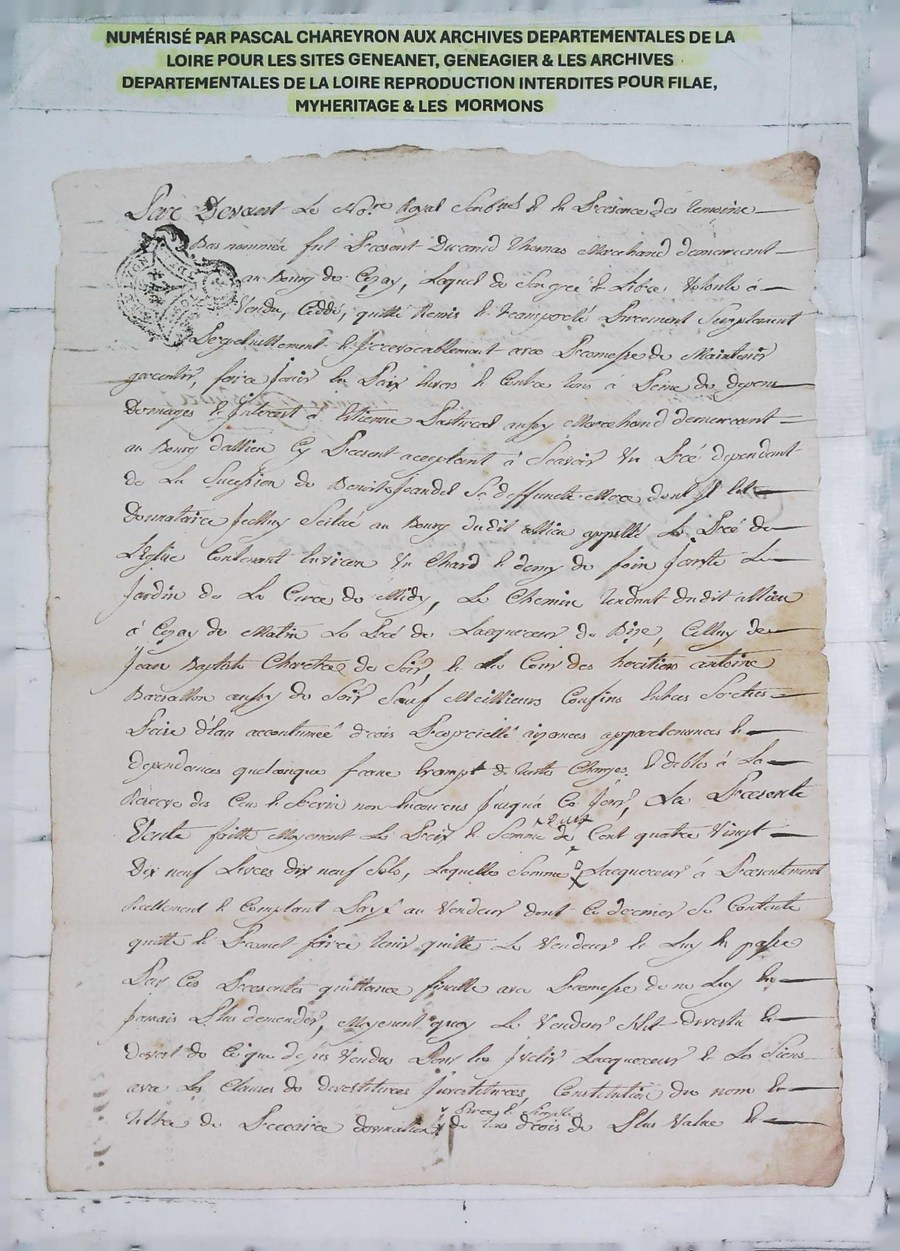 NUMÉRISÉ PAR PASCAL CHAREYRON AUX ARCHIVES DEPARTEMENTALES DE LA
LOIRE POUR LES SITES GENEANET, GENEAGIER & LES ARCHIVES
DEPARTEMENTALES DE LA LOIRE REPRODUCTION INTERDITES POUR FILAE,
MYHERITAGE & LES MORMONS
Par Devant Le No.re Royal & En Presence des temoins
Bas nommés fut Present Durand Thomas Marchand demeurant
au Bourg de Cezay, Lequel de Son gré & Libre Volonté a
Vendu, Ceddé, quitté Remis & transporté Purement Simplement
Perpetuellement & Irrevocablement avec Promesse de Maintenir
garentir, faire Jouir En Paix Envers & Contre tous à Peine de depens
Domages & Interest à Etienne aussy Marchand demeurant
au Bourg dallieu Cy Present acceptant à Scavoir Un Pré dependant
de La Sucession de Benoite Sa deffuncte Mere dont Il est
Donnataire Scitué au Bourg dudit allieu appellé Le Pré de
L'Eglise Contenant Environ Un Chard & demy de foin Joint Le
Jardin de La Cure de Midy, Le Chemin tendant dudit allieu
à Cezay de Matin Le Pré de Lacquereur de Bize, Celluy de
Jean Baptiste de Soir, & La Cour des heritiers antoine
Barrallon aussy de Soir Sauf Meillieurs Confins Entrées Sorties
Prise d'Eau accoutumée droits aizances appartenances &
dependances quelconque franc Exempt de toutes Charges & debtes à La
Réserve des Cens & Servis non Encourus Jusqua Ce Jour, La Presente
Vente faitte Moyenant Le Prix & Somme de deux Cent quatre Vingt
Dix neuf Livres dix neuf Sols, Laquelle Somme Lacquereur à Presentement
Reellement & Comptant Payé au Vendeur dont Ce dernier Se Contente
quitte & Promet faire tenir quitte Le Vendeur & Luy En passe
Par Ces Presentes quittance finalle avec Promesse de ne Luy En
Jamais Plus demender, Moyenent quoy Le Vendeur S'Est devestu &
devest de Ce que dessus Vendu Pour En Lacquereur & Les Siens
avec Les Clauses de devestitures Investitures, Constitution de nom &
tiltre de Precaire donnation Pure & Simple de tous droits de Plus Value &